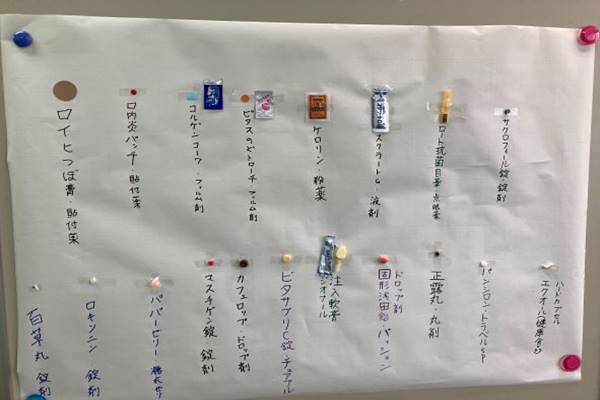 サクロフィール錠・錠剤
ロート抗菌目薬・点眼薬
スクラートG 液剤
ケロリン・粉薬
ビタスのどトローチ・フィルム剤
コルゲンコーワ・フィルム剤
口内炎パッチ・貼付薬
ロイヒつぼ膏・貼付薬
ハードカプセル
エクオール
パンシロン・トラベルSP
正露丸・丸剤
ドロップ剤
固形浅田飴・パッション
注入軟膏
ビタサプリC錠・チュアブル
カフェロップ・ドロップ剤
マスチゲン錠・錠剤
ロキソニン 錠剤
百草丸 錠剤